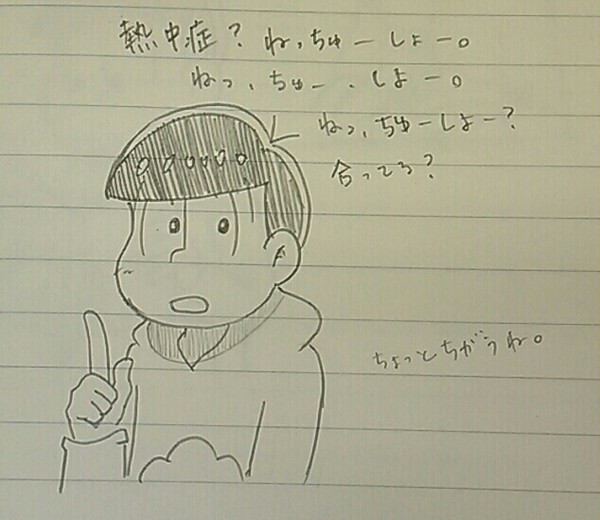 熱中症？ねっちゅーしょー。
ねっ、ちゅー、しよー。
ねっ、ちゅーしよー？
合ってる？
ちょっとちがうね。